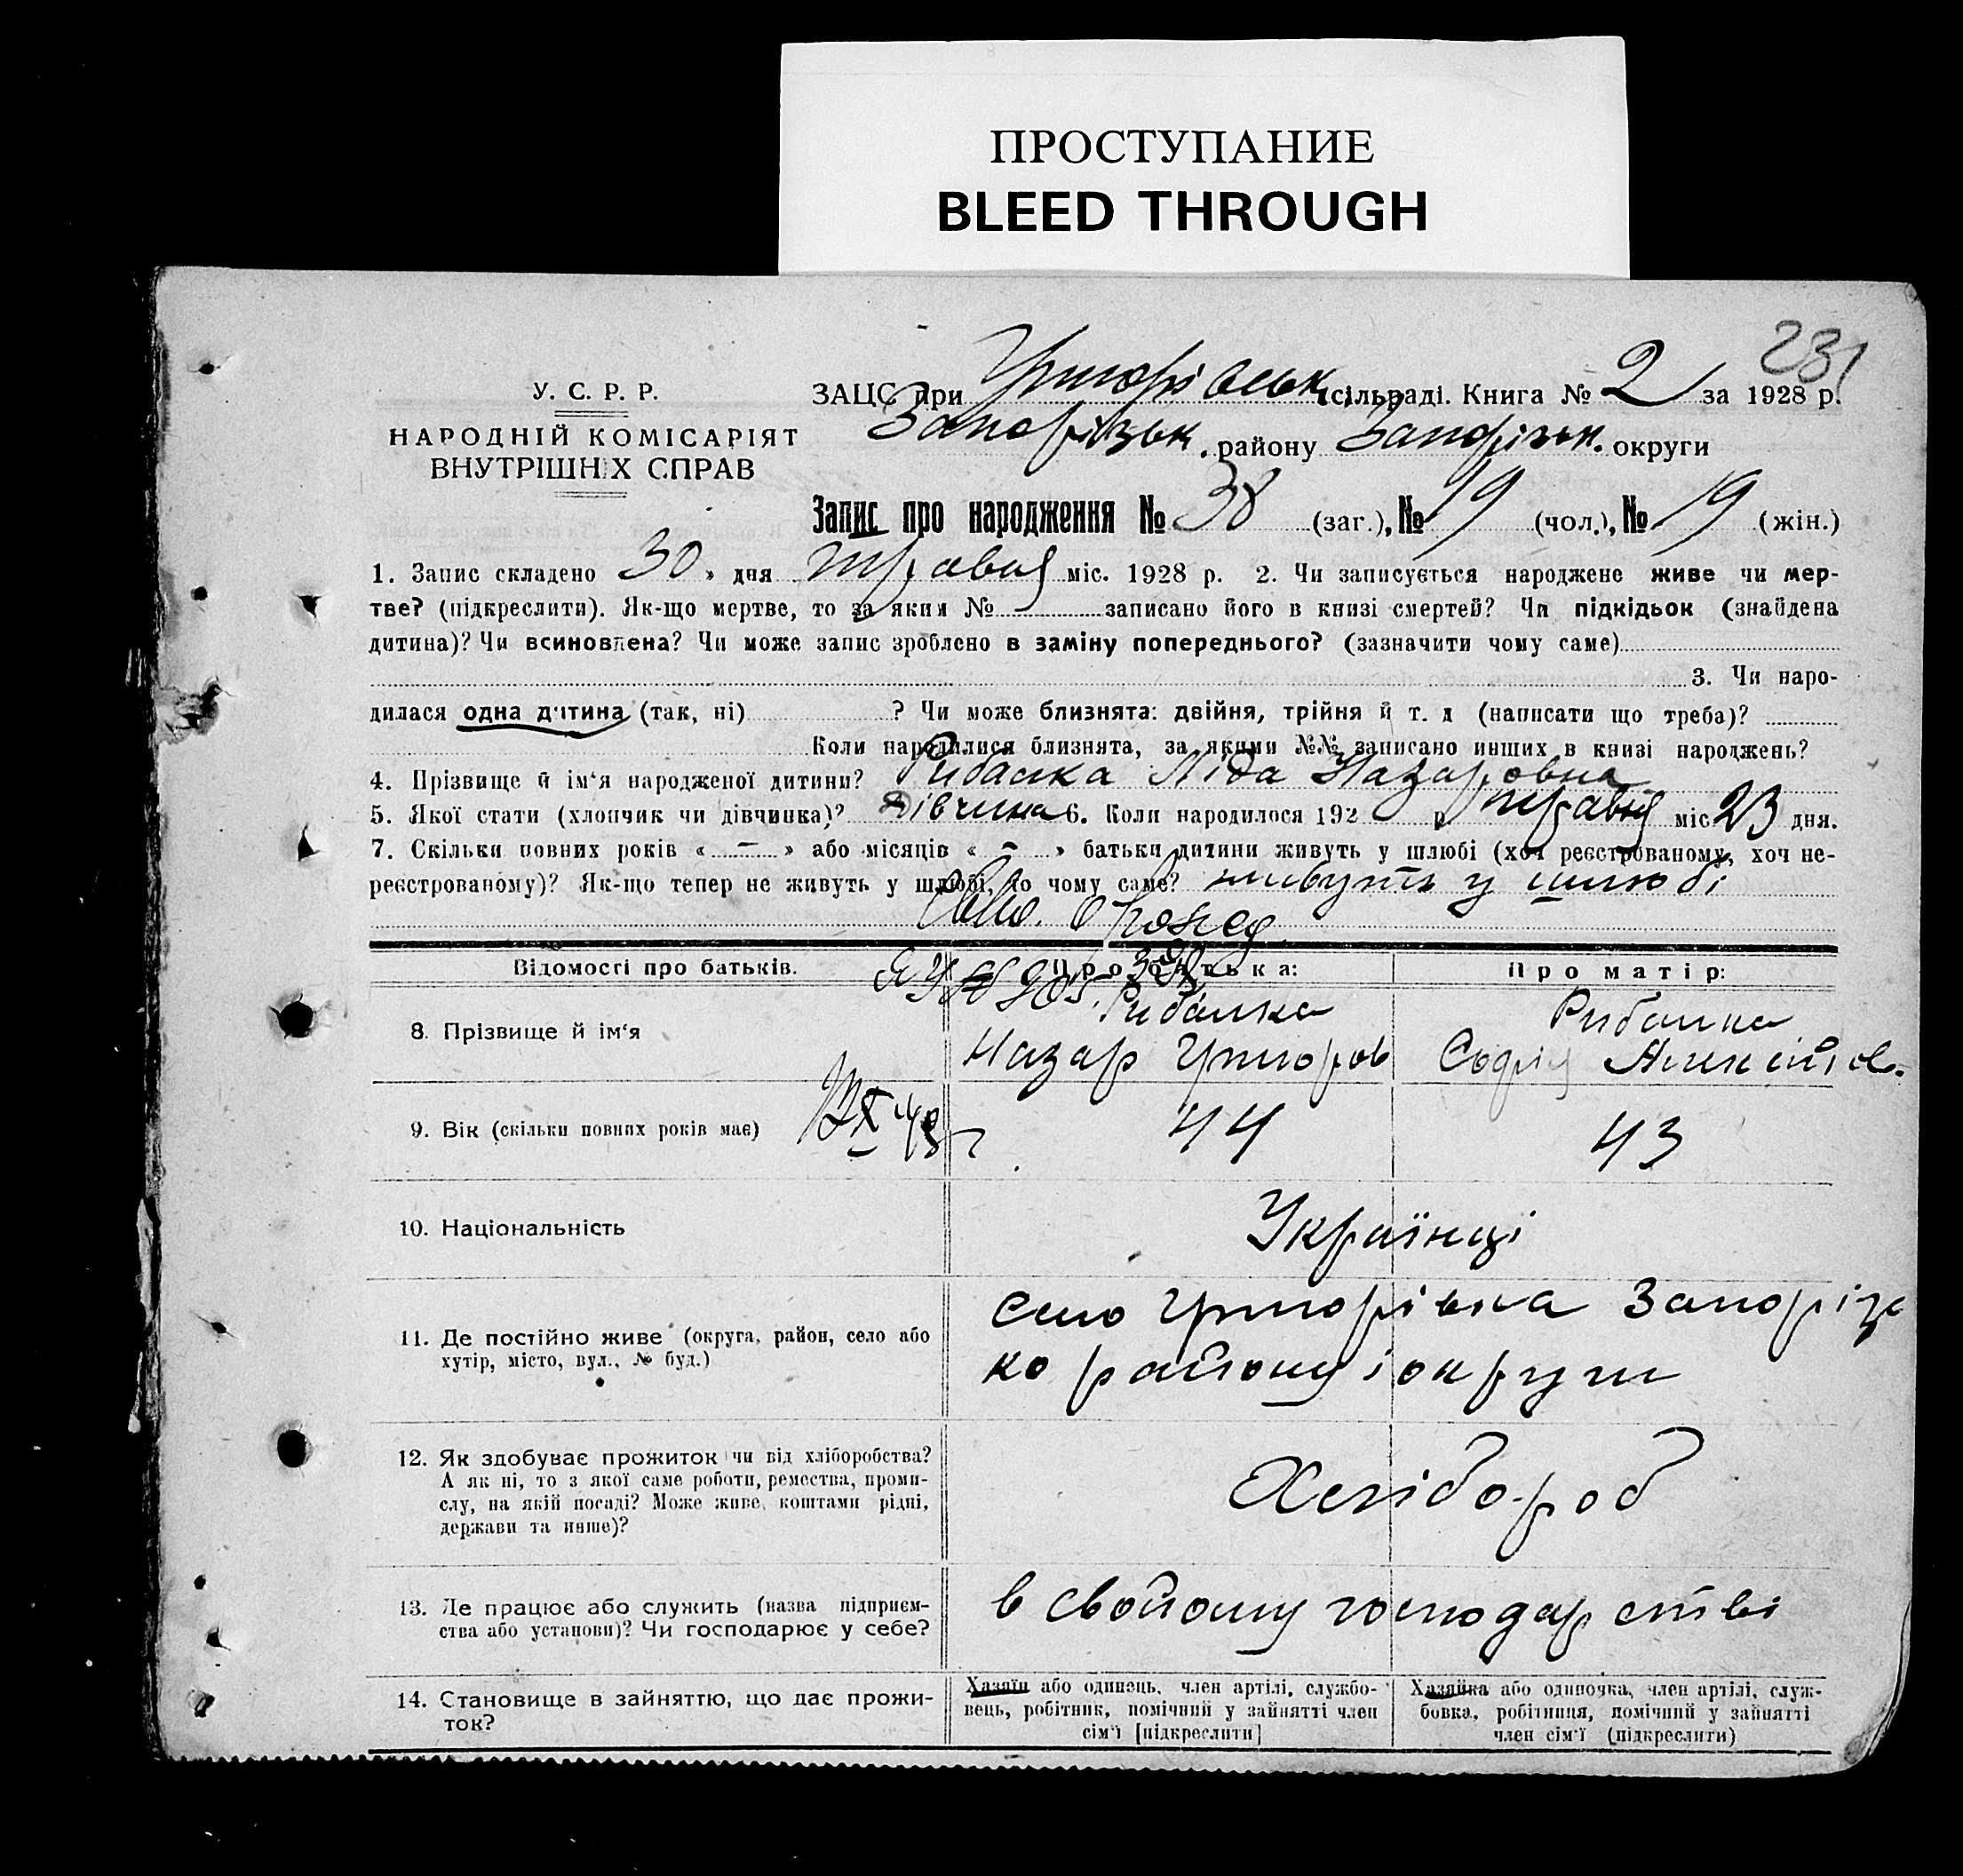 ПРОСТУПАНИЕ
BLEED THROUGH
231
У. С. Р. Р.
НАРОДНІЙ КОМІСАРІЯТ
ВНУТРІШНІХ СПРАВ
ЗАЦС при Григорівськ сільраді. Книга № 2 за 1928 р.
Запорізьк. району Запорізьк. округи
Запис про народження № 38 (заг.), № 19 (чол.), № 19 (жін.)
1. Запис складено 30 » дня травня міс. 1928 р. 2. Чи записується народжене живе чи мер-
тве? (підкреслити). Як-що мертве, то за яким № записано його в книзі смертей? Чи підкідьок (знайдена
дитина)? Чи всиновлена? Чи може запис зроблено в заміну попереднього? (зазначити чому саме)
3. Чи наро-
дилася одна дитина (так, ні) ? Чи може близнята: двійня, трійня й т. д (написати що треба)?
Коли народилися близнята, за якими №№ записано инших в книзі народжень?
4. Прізвище й ім‘я народженої дитини? Рибалка Ліда Назаровна
5. Якої стати (хлопчик чи дівчинка)? дівчина 6. Коли народилося 192 р травня міс 23 дня.
7. Скільки повних років « — » або місяців « - » батьки дитини живуть у шлюбі (хоч реєстрованому, хоч не-
реєстрованому)? Як-що тепер не живуть у шлюбі, то чому саме? живуть у шлюбі
Відомості про батьків.
Про батька:
Про матір:
8. Прізвище й ім‘я
Рибалка
Назар Григоров
Рибалка
Софія
9. Вік (скільки повних років має)
44
43
10. Національність
Українці
11. Де постійно живе (округа, район, село або
хутір, місто, вул., № буд.)
село Григорівка Запорізь
ко району і округи
12. Як здобуває прожиток чи від хліборобства?
А як ні, то з якої саме роботи, ремества, проми-
слу, на якій посаді? Може живе, коштами рідні,
держави та инше)?
Хлібороб
13. Де працює або служить (назва підприєм-
ства або установи)? Чи господарює у себе?
в свойому господарстві
14. Становище в зайняттю, що дає прожи-
ток?
Хазяїн або одинець, член артілі, службо-
вець, робітник, помічний у зайнятті член
сім‘ї [підкреслити]
Хазяйка або одиночка, член артілі, служ-
бовка, робітниця, помічний у зайнятті
член сім‘ї (підкреслити)